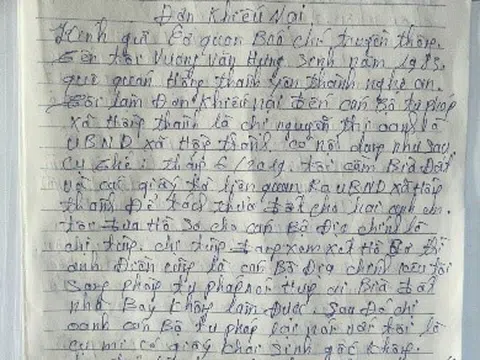 Đơn Khiếu Nại
Kính gửi Cơ quan Báo chí truyền thông.
Tên tôi Vương Văn Hưng Sinh năm 1983.
quê quán thành yên thành nghệ an.
Tôi làm Đơn khiếu nại đến cán Bộ tư pháp
xã là chị nguyễn thị oanh và
UBND xã thành. Có nội dung như sau
Cụ thể: tháng 6/2019. tôi cầm Bìa Đất
và các giấy tờ liên quan Ra UBND xã
thành Để tách thửa đất cho hai anh em.
tôi đưa Hồ Sơ cho cán Bộ Địa chính là
chị tùng. chị tùng đang xem xét Hồ Sơ thì
anh Điền cũng là cán Bộ Địa chính tôi
sang phòng tư pháp Bìa đất
nhà Bay không làm Được. Sau Đó chị
oanh cán Bộ tư pháp lại nói với tôi là
có giấy khai sinh gốc không.